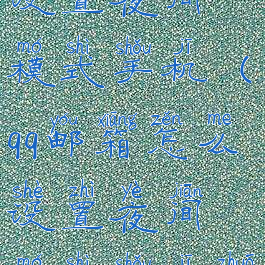 设置夜间
mó shì shǒu jī
模式手机（
yóu xiāng zěn me
qq邮箱怎么
shè zhì yè jiān
设置夜间